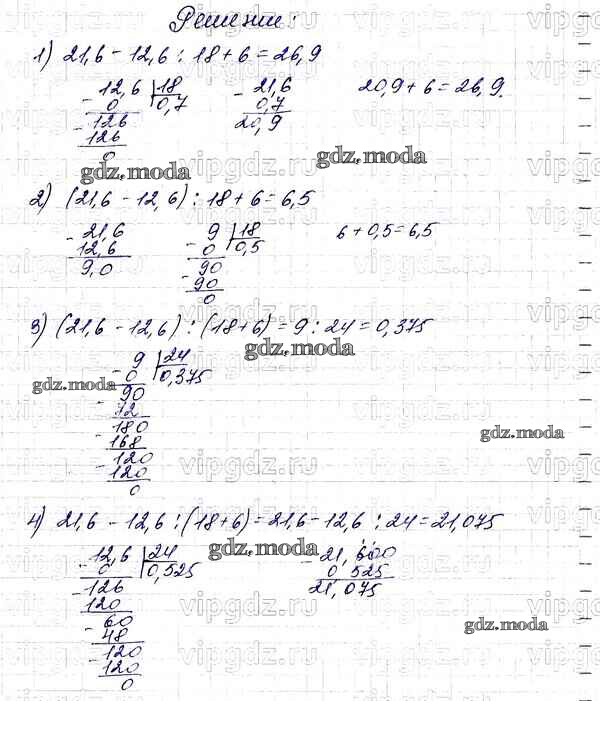 Решение:
1) 21,6 - 12,6 : 18 + 6 = 26,9
12,6 | 18
- 0 | 0,7
126
- 126
0
- 21,6
0,7
20,9
20,9 + 6 = 26,9.
gdz.moda
gdz.moda
2) (21,6 - 12,6) : 18 + 6 = 6,5
- 21,6
12,6
9,0
9 | 18
- 0 | 0,5
90
- 90
0
6 + 0,5 = 6,5
3) (21,6 - 12,6) : (18 + 6) = 9 : 24 = 0,375
gdz.moda
9 | 24
- 0 | 0,375
90
- 72
180
- 168
120
- 120
0
gdz.moda
gdz.moda
4) 21,6 - 12,6 : (18 + 6) = 21,6 - 12,6 : 24 = 21,075
gdz.moda
12,6 | 24
- 0 | 0,525
- 126
120
- 60
48
- 120
120
0
- 21,600
0 525
21,075
gdz.moda
vipgdz.ru